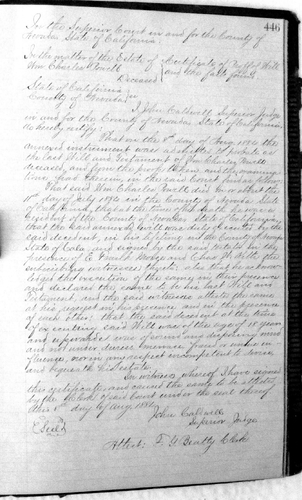 446
In the Superior Court in and for the County of
Nevada State of California
In the matter of the Estate of Certificate of Proof of Will
Wm Charles Powell and the facts found
Deceased
State of California
County of Nevada
I, John Caldwell, Superior Judge
in and for the County of Nevada, State of California,
do hereby certify:
That on the day of Aug 1892 the
annexed instrument was admitted to probate as
the last Will and Testament of Wm Charles Powell
deceased, and from the proofs taken and the examina-
tion had therein, the said Court finds as follows:
That said Wm Charles Powell died on or about the
day of July 1892 in the County of Nevada State
of California, that at the time of his death he was a
resident of the County of Nevada, State of California,
that the said annexed Will was duly executed by the
said decedent, in his lifetime in the County of Nevada
State of and signed by the said testator in the
presence of and Chas H. Mills the
subscribing witnesses thereto, also that he acknow-
ledged the execution of the same in their presence
and declared the same to be his last Will and
Testament, and the said witnesses attested the same
at his request in his presence and in the presence
of each other. that the said decedent at the time
of executing said Will was of the age of 18 years
and upwards, was of sound and disposing mind
and not under duress, menace, fraud or undue in-
fluence, nor in any respect incompetent to devise
and bequeath his estate.
In witness whereof I have signed
this certificate and caused the same to be attested
by the Clerk of said Court under the seal thereof
this day of Aug. 1892
John Caldwell
(Seal) Superior Judge
Attest: Beatty Clerk